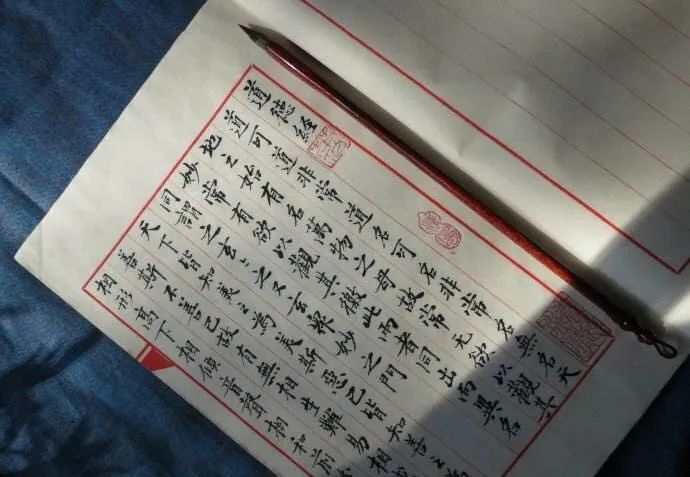 道德經
道可道非常道名可名非常名無名天
地之始有名萬物之母故常无欲以觀其
妙常有欲以觀其徼此兩者同出而異名
同謂之玄〻之又玄衆妙之門
天下皆知美之為美斯惡已皆知善之為
善斯不善已故有無相生難易相
相形高下相傾音聲相和前